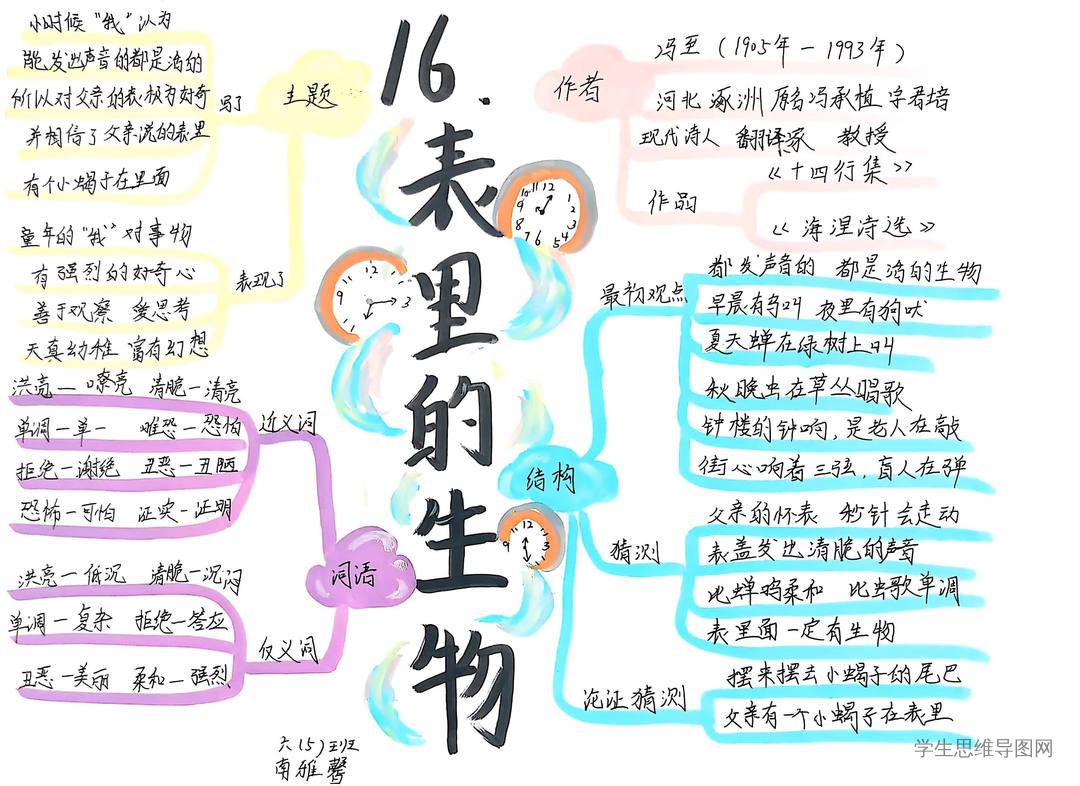 16.
表里的生物
主题
写了
小时候“我”认为
能发出声音的都是活的
所以对父亲的表极为好奇
并相信了父亲说的表里
有个小蝎子在里面
表现了
童年的“我”对事物
有强烈的好奇心
善于观察 爱思考
天真幼稚 富有幻想
作者
冯至(1905年-1993年)
河北 涿洲 原名冯承植 字君培
现代诗人 翻译家 教授
作品
《十四行集》
《海涅诗选》
词语
近义词
洪亮—嘹亮 清脆—清亮
单调—单一 唯恐—恐怕
拒绝—谢绝 丑恶—丑陋
恐怖—可怕 证实—证明
反义词
洪亮—低沉 清脆—沉闷
单调—复杂 拒绝—答应
丑恶—美丽 柔和—强烈
结构
最初观点
都发声音的 都是活的生物
早晨有鸟叫 夜里有狗吠
夏天蝉在绿树上叫
秋晚虫在草丛唱歌
钟楼的钟响,是老人在敲
街心响着三弦,盲人在弹
猜测
父亲的怀表 秒针会走动
表盖发出清脆的声音
比蝉鸣柔和 比虫歌单调
表里面一定有生物
论证猜测
摆来摆去小蝎子的尾巴
父亲有一个小蝎子在表里
12
3
9
12
3
9
10
11
12
1
2
3
4
5
6
7
8
9
六(5)班
南雅馨
学生思维导图网